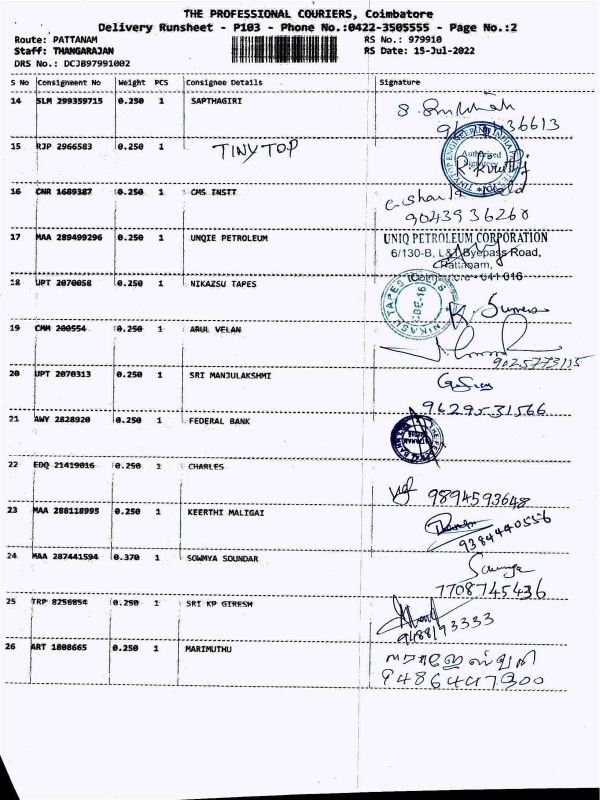 THE PROFESSIONAL COURIERS, Coimbatore
Delivery Runsheet - P103 - Phone No.:0422-3505555 - Page No.:2
Route: PATTANAM RS No.: 979910
Staff: THANGARAJAN RS Date: 15-Jul-2022
DRS No.: DCJB97991002
S No Consignment No Weight PCS Consignee Details Signature
14 SLM 299359715 0.250 1 SAPTHAGIRI
36613
15 RJP 2966583 0.250 1 TINY TOP
Authorised
Signatory
16 CNR 1689387 0.250 1 CMS INSTT
9043936260
17 MAA 289499296 0.250 1 UNQIE PETROLEUM UNIQ PETROLEUM CORPORATION
6/130-B, L&T Byepass Road,
Pattanam,
Coimbatore - 641 016
18 UPT 2070058 0.250 1 NIKAZSU TAPES
NIKASU TAPES
CBE-16
19 CMM 200554 0.250 1 ARUL VELAN
9025773115
20 UPT 2070313 0.250 1 SRI MANJULAKSHMI
9629531566
21 AWY 2828920 0.250 1 FEDERAL BANK
22 EDQ 21419016 0.250 1 CHARLES
9894593648
23 MAA 288118995 0.250 1 KEERTHI MALIGAI
9384440556
24 MAA 287441594 0.370 1 SOWMYA SOUNDAR
Sowmya
7708745436
25 TRP 8256854 0.250 1 SRI KP GIRESH
9488193333
26 ART 1808665 0.250 1 MARIMUTHU
9486447300